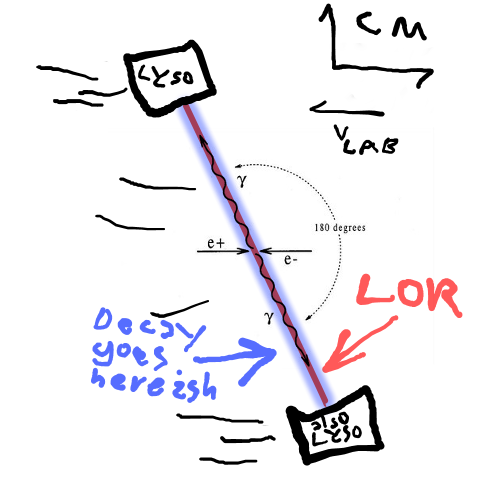 CM
LYSO
VLAB
γ
180 degrees
e+
e-
γ
LOR
Decay
goes
hereish
also
LYSO